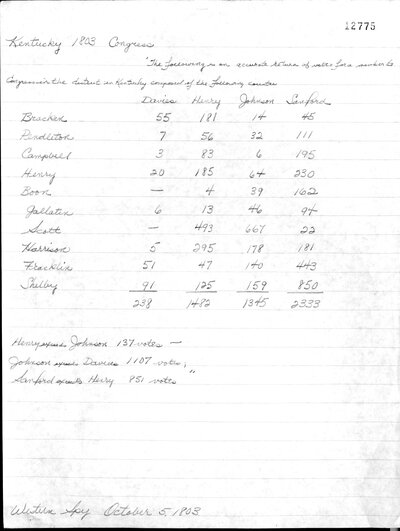 12775
Kentucky 1803 Congress
"The following is an accurate return of votes for a member to
Congress in the district in Kentucky composed of the following counties
Daviess Henry Johnson Sanford
Bracken 55 181 14 45
Pendleton 7 56 32 111
Campbell 3 83 6 195
Henry 20 185 64 230
Boon — 4 39 162
Gallatin 6 13 46 94
Scott — 493 667 22
Harrison 5 295 178 181
Franklin 51 47 140 443
Shelby 91 125 159 850
238 1482 1345 2333
Henry exceeds Johnson 137 votes —
Johnson exceeds Daviess 1107 votes;
Sanford exceeds Henry 851 votes "
Western Spy October 5, 1803